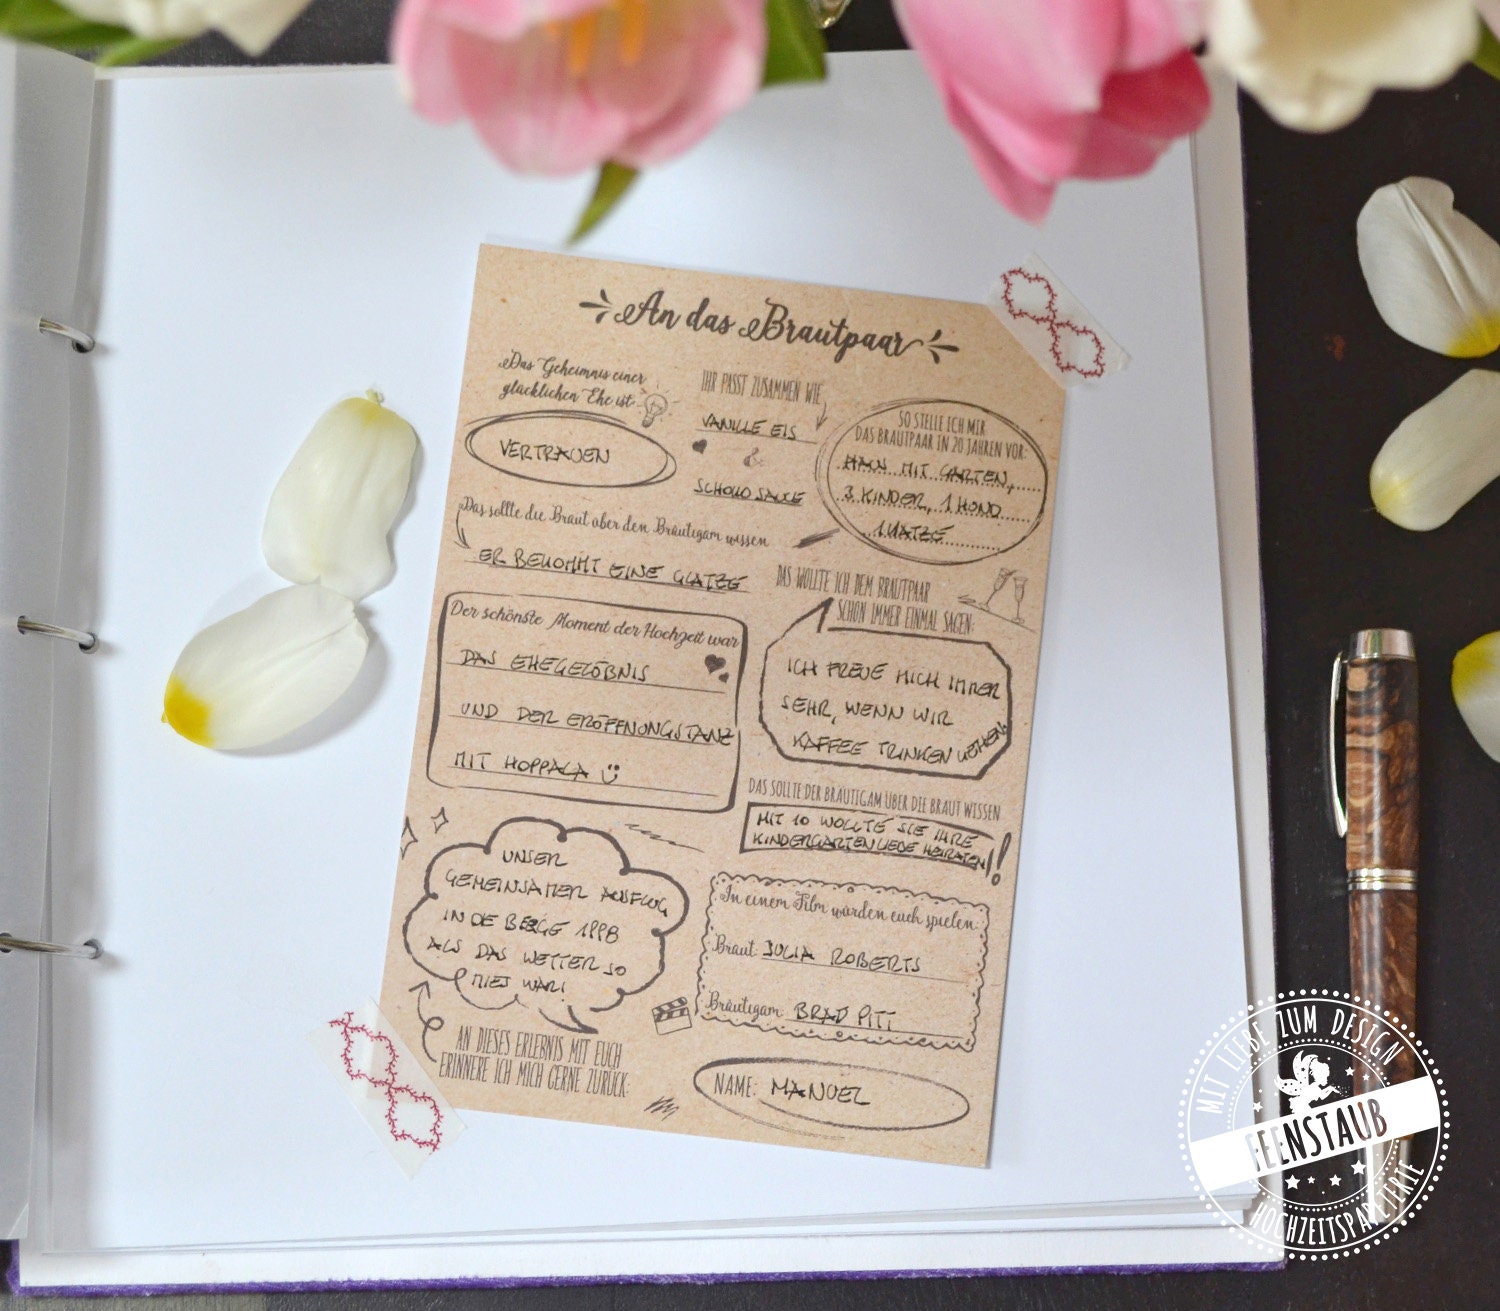 An das Brautpaar
Das Geheimnis einer
glücklichen Ehe ist
VERTRAUEN
IHR PASST ZUSAMMEN WIE
VANILLE EIS
&
SCHOKO SAUCE
SO STELLE ICH MIR
DAS BRAUTPAAR IN 20 JAHREN VOR:
HAUS MIT GARTEN,
3 KINDER, 1 HUND
1 KATZE
Das sollte die Braut über den Bräutigam wissen
ER BEKOMMT EINE GLATZE
DAS WOLLTE ICH DEM BRAUTPAAR
SCHON IMMER EINMAL SAGEN:
ICH FREUE MICH IMMER
SEHR, WENN WIR
KAFFEE TRINKEN GEHEN
Der schönste Moment der Hochzeit war
DAS EHEGELÖBNIS
UND DER ERÖFFNUNGSTANZ
MIT HOPPALA
DAS SOLLTE DER BRÄUTIGAM ÜBER DIE BRAUT WISSEN
MIT 10 WOLLTE SIE IHRE
KINDERGARTENLIEBE HEIRATEN
!
UNSER
GEMEINSAMER AUSFLUG
IN DIE BERGE 1998
ALS DAS WETTER SO
MIES WAR!
AN DIESES ERLEBNIS MIT EUCH
ERINNERE ICH MICH GERNE ZURÜCK:
In einem Film würden euch spielen:
Braut: JULIA ROBERTS
Bräutigam: BRAD PITT
NAME: MANUEL
MIT LIEBE ZUM DESIGN
FEENSTAUB
HOCHZEITSPAPETERIE